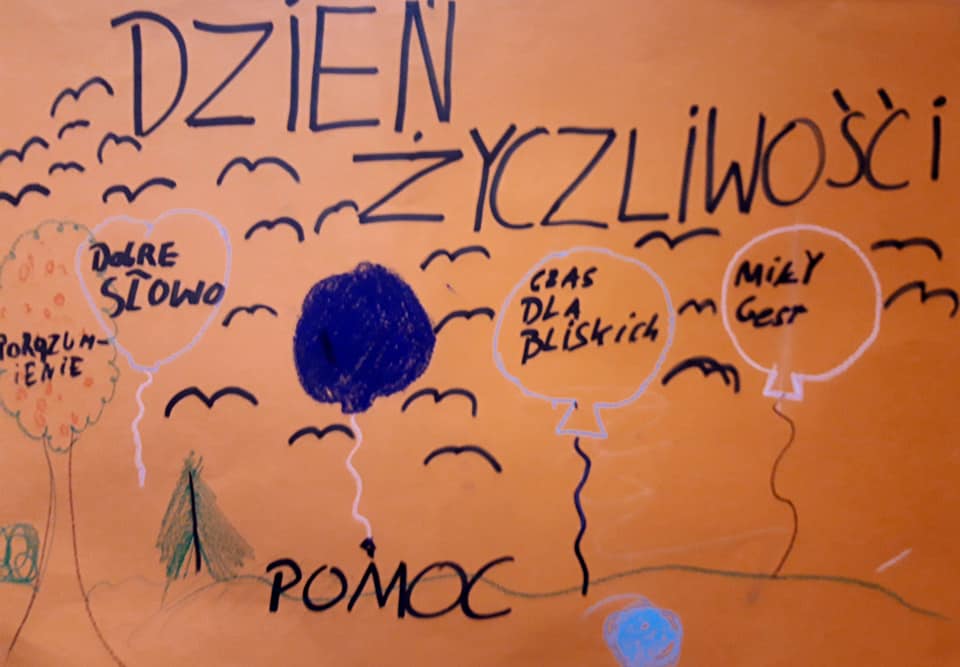 DZIEŃ
ŻYCZLIWOŚĆI
DOBRE
SŁOWO
POROZUM-
IENIE
CZAS
DLA
BLISKICH
MIŁY
Gest
POMOC